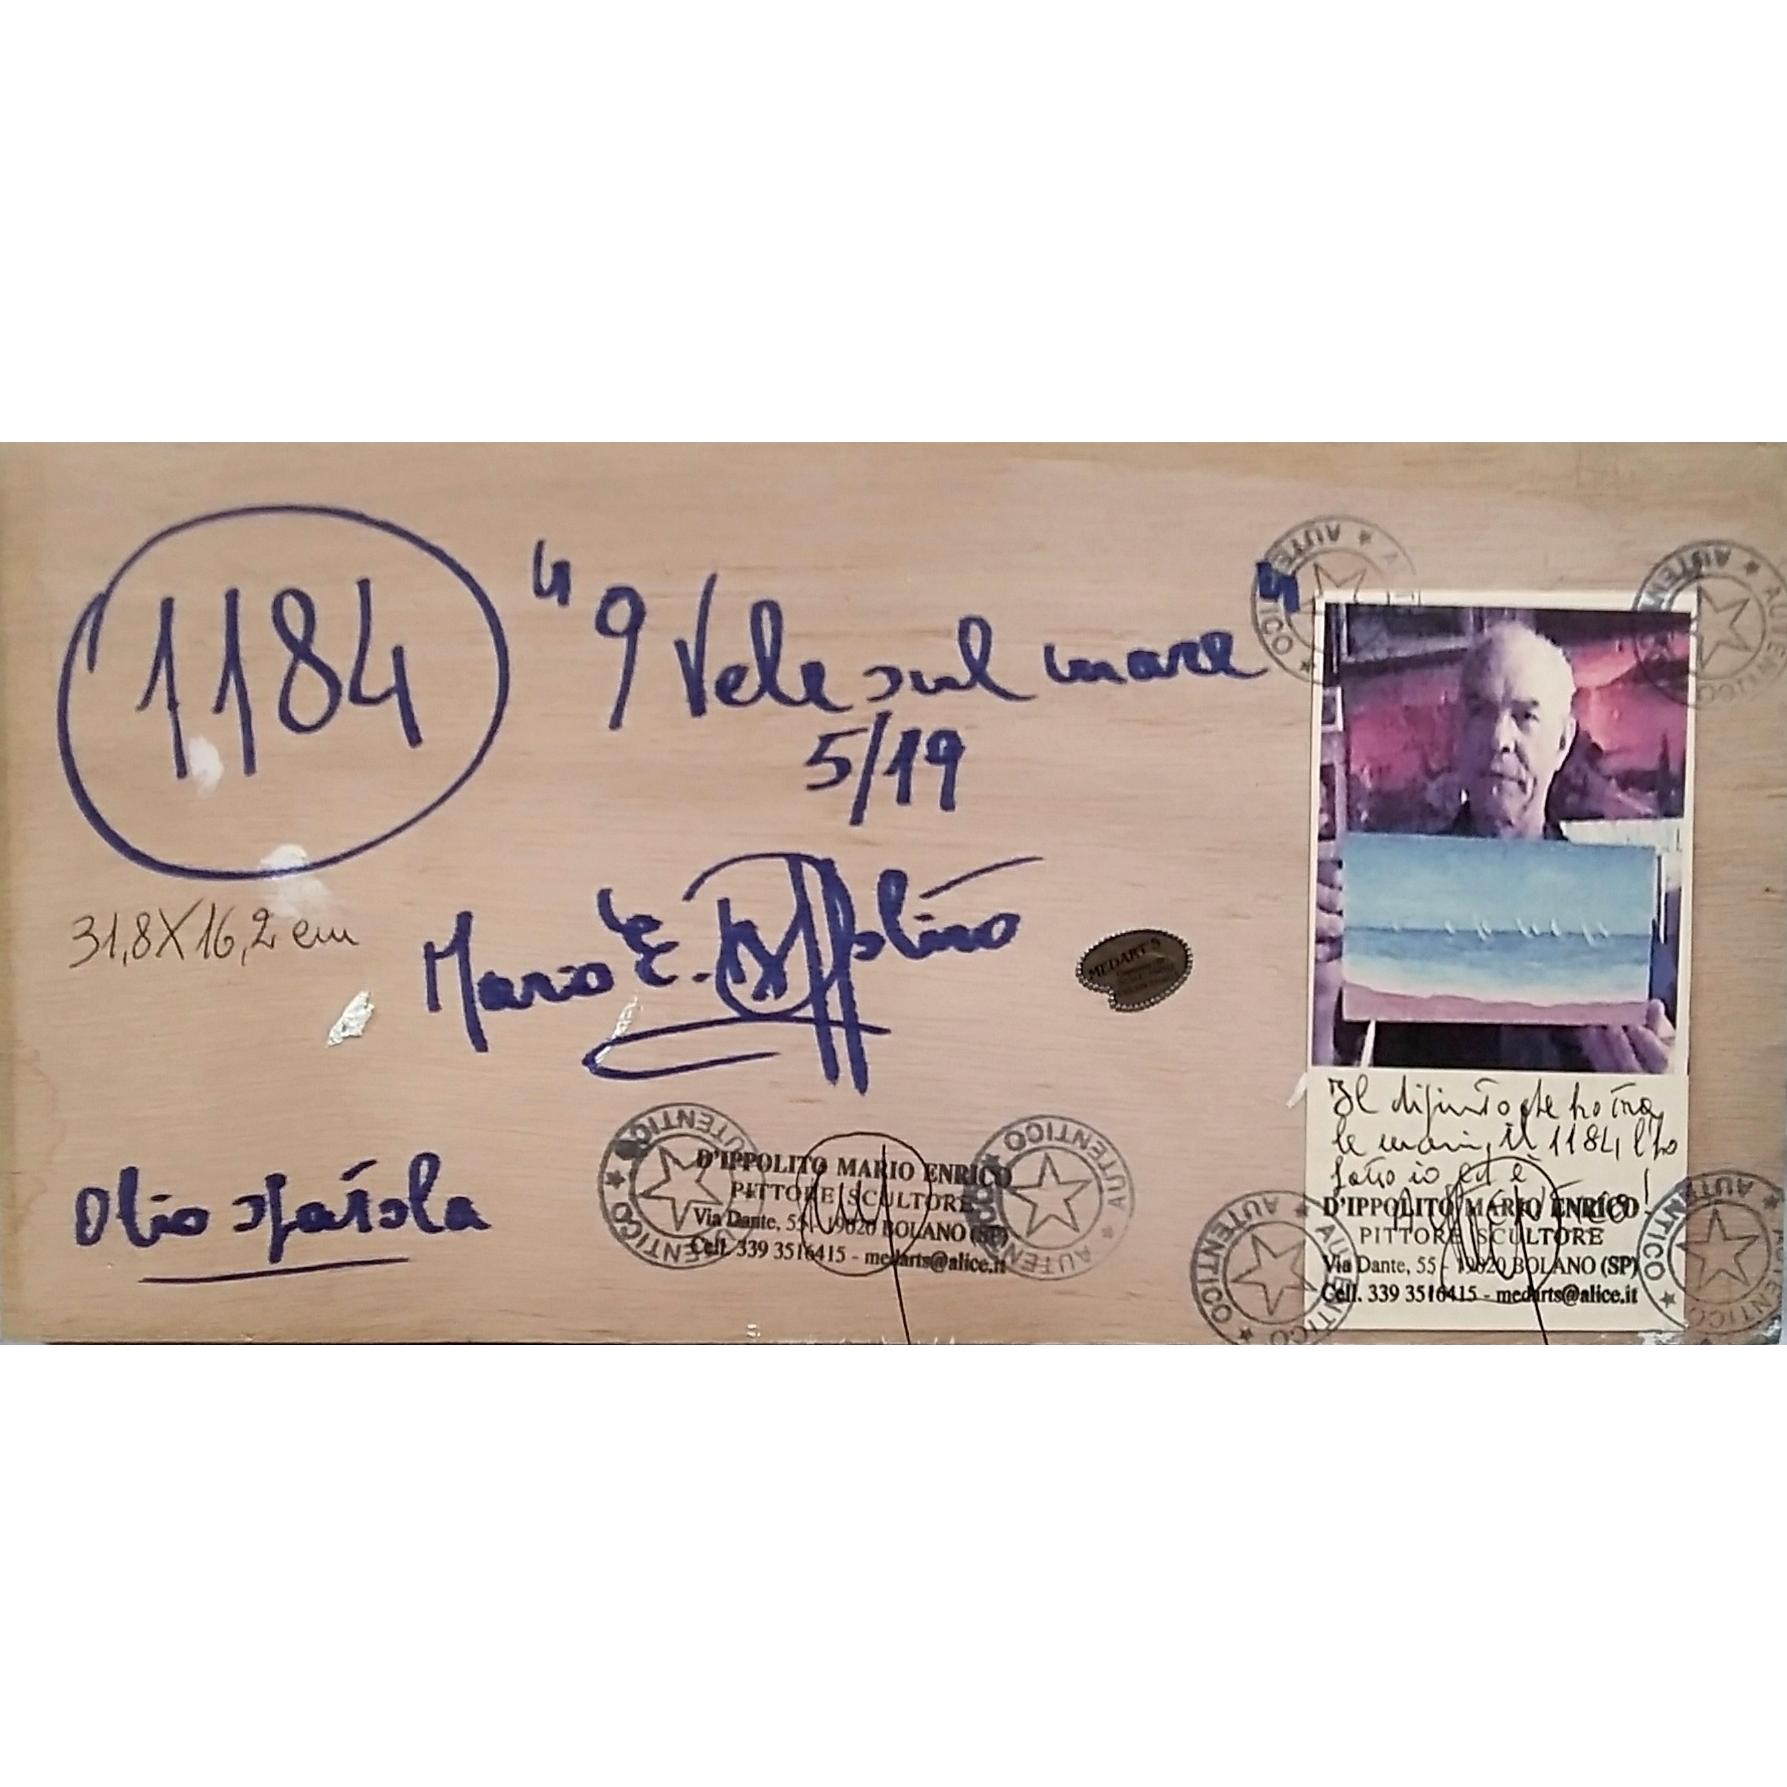 1184
"9 Vele sul mare"
5/19
31,8X16,2 cm
Mario E. D'Ippolito
MEDART'S
Olio spatola
AUTENTICO ★ AUTENTICO ★
D'IPPOLITO MARIO ENRICO
PITTORE SCULTORE
Via Dante, 55 - 19020 BOLANO (SP)
Cell. 339 3516415 - medarts@alice.it
AUTENTICO ★ AUTENTICO ★
AUTENTICO ★ AUTENTICO ★
AUTENTICO ★ AUTENTICO ★
Il dipinto che ho tra
le mani, il 1184 l'ho
fatto io ed è
D'IPPOLITO MARIO ENRICO
PITTORE SCULTORE
Via Dante, 55 - 19020 BOLANO (SP)
Cell. 339 3516415 - medarts@alice.it
AUTENTICO ★ AUTENTICO ★
AUTENTICO ★ AUTENTICO ★